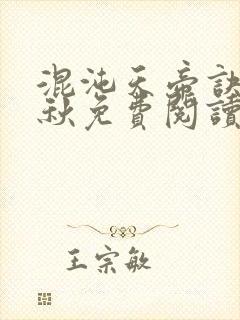 混沌天帝訣
秋免費閱讀
王宗敏